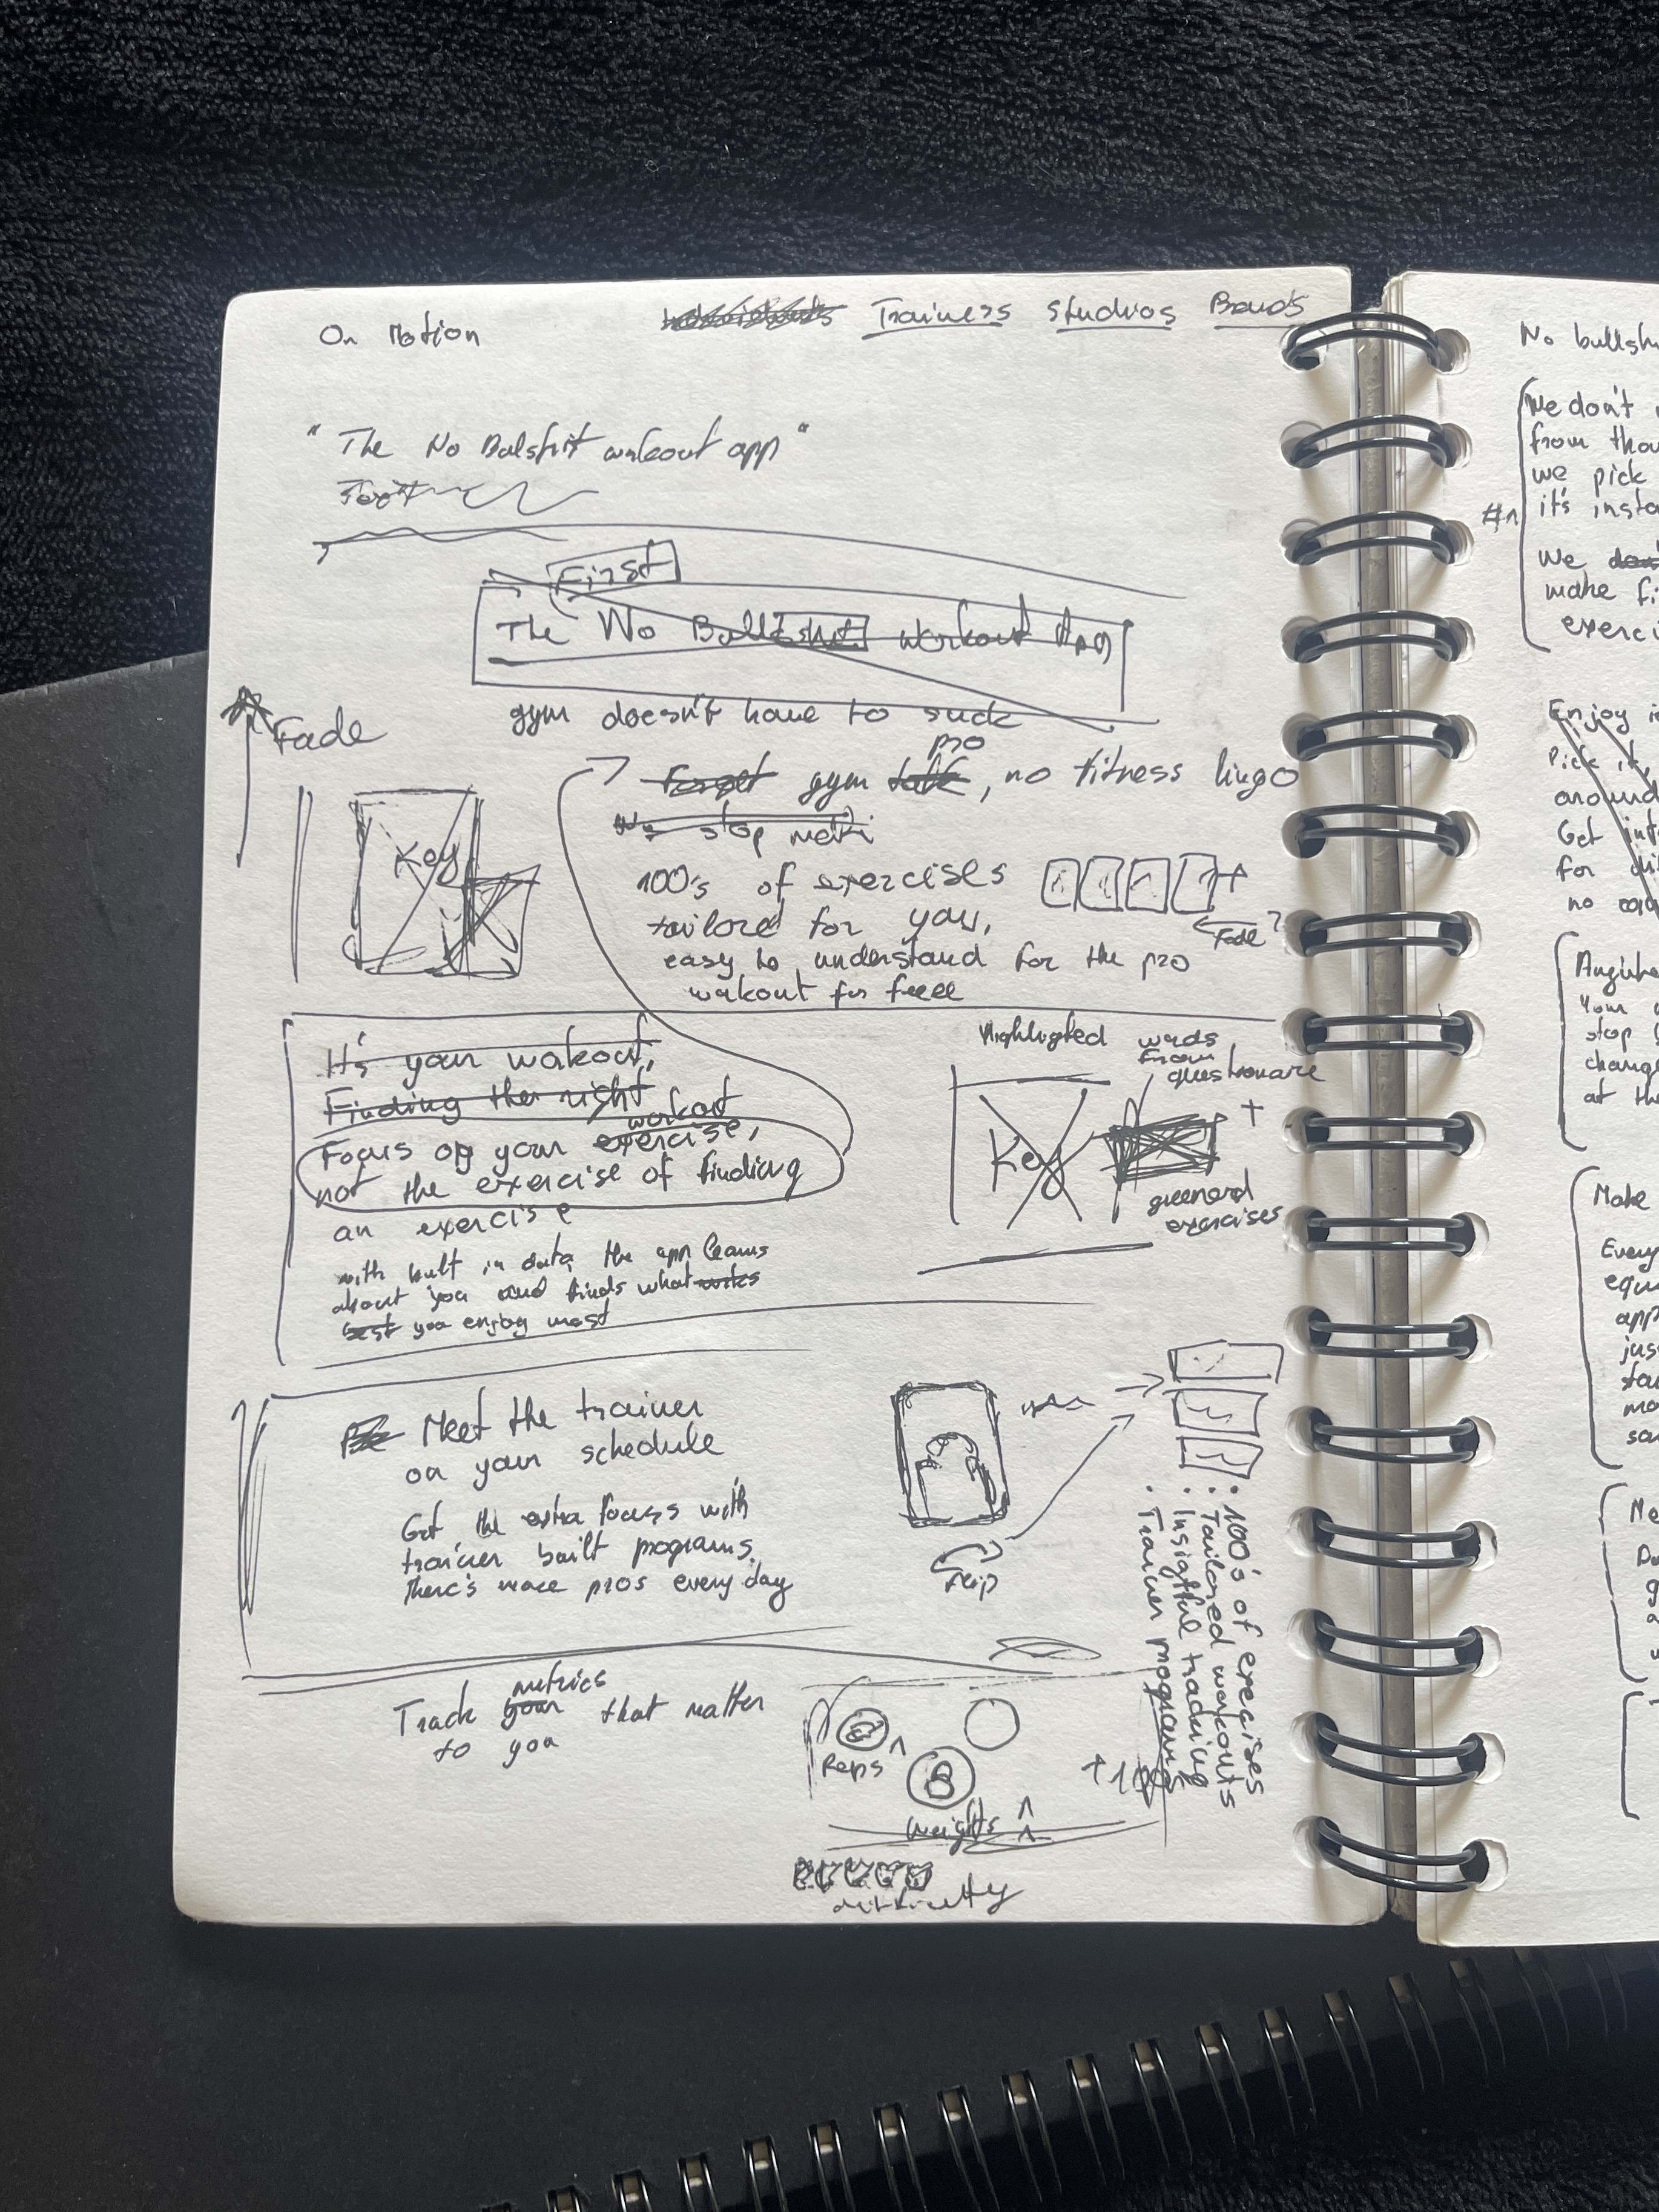 On Motion
Trainers Studios Brands
" The No Bulshit workout app "
Text
First
The No Bullshit workout App
gym doesn't have to suck
Fade
pro
Forget gym talk, no fitness lingo
We stop
Key
100's of exercises
tailored for you,
Fade?
easy to understand for the pro
workout for free
It's your workout,
Finding the right
workout
Focus on your exercise,
not the exercise of finding
an exercise
with built in data, the app learns
about you and finds what works
best you enjoy most
Highlighted words
from
questionare
+
Key
exercises
Meet the trainer
on your schedule
Get the extra focus with
trainer built programs,
there's more pros every day
Flip
• 100's of exercises
• Tailored workouts
• Insightful tracking
• Trainer programs
metrics
Track your that matter
to you
Reps
Weights
difficulty
No bullsh
We don't
from thou
we pick
#1
it's insta
We
make fi
exerci
Enjoy i
Pick it,
around
Get inf
for
no
Your
stop
chang
at the
Make
Every
equ
app
jus
sta
mo